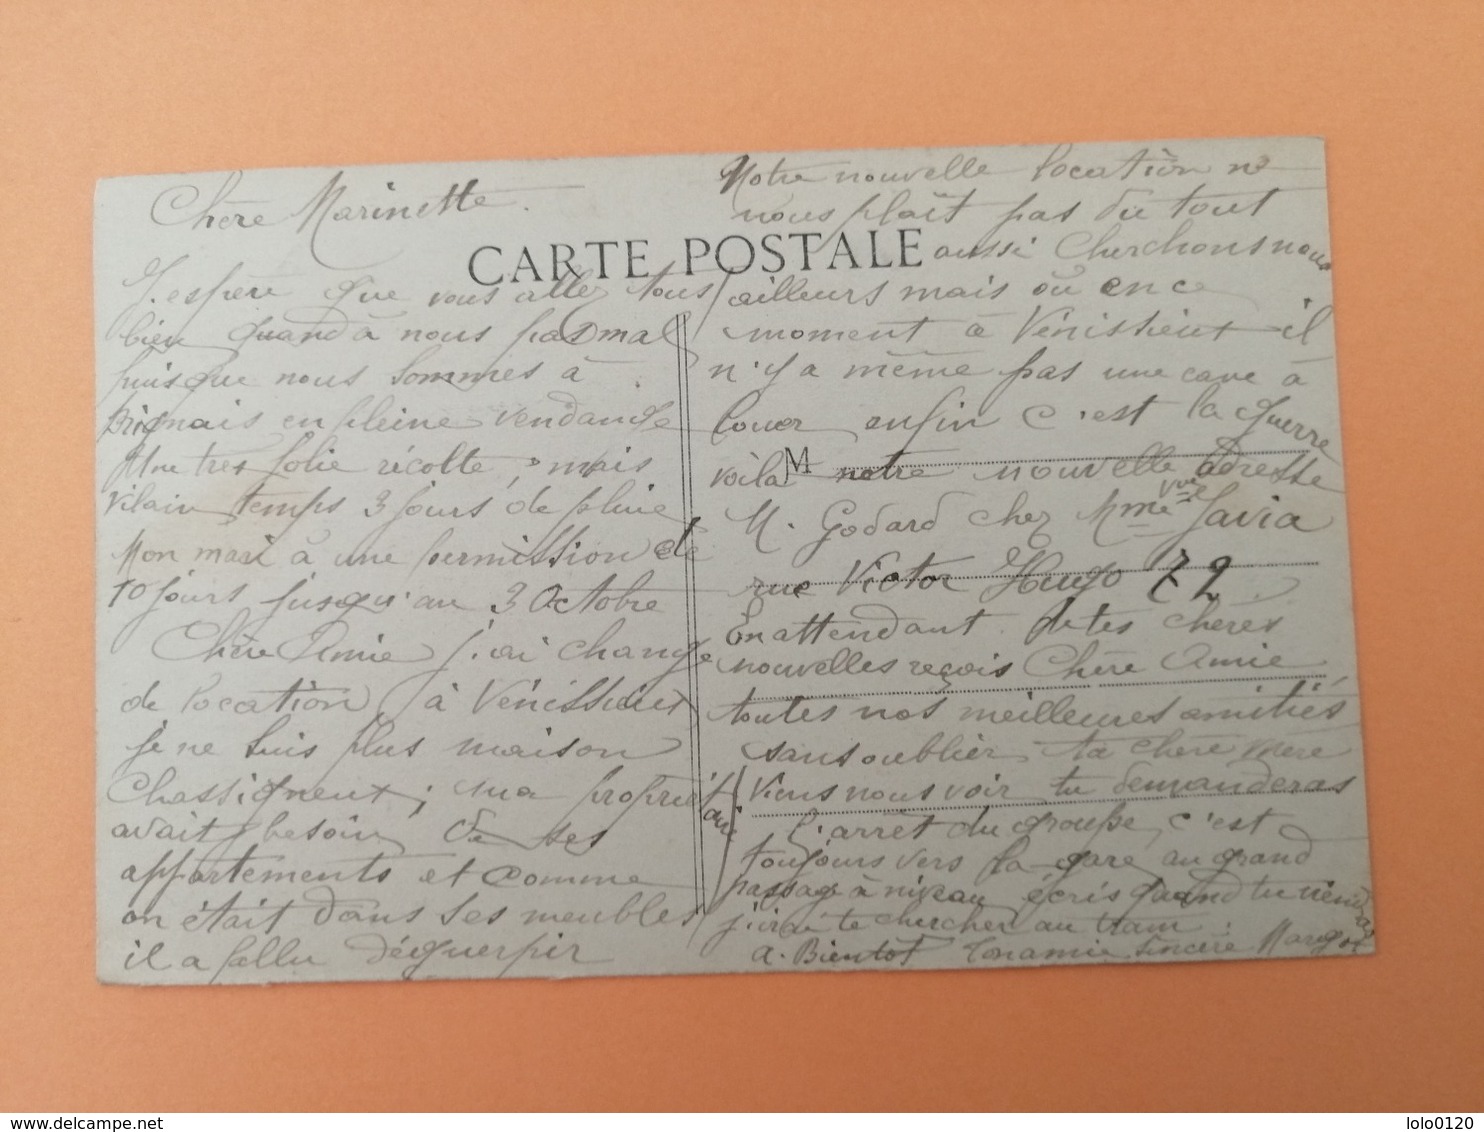 Chère Marinette.
CARTE POSTALE
J'espère que vous allez tous
bien quand à nous pas mal
puisque nous sommes à
Brignais en pleine vendange
Une très jolie récolte, mais
vilain temps 3 jours de pluie
Mon mari à une permission de
10 jours jusqu'au 3 Octobre
Chère Amie j'ai changé
de location à Vénissieux
je ne suis plus maison
Chassigneux; ma propriétaire
avait besoin de ses
appartements et comme
on était dans ses meubles
il a fallu déguerpir
Notre nouvelle location ne
nous plaît pas du tout
aussi cherchons nous
ailleurs mais où en ce
moment à Vénissieux il
n'y a même pas une cave à
louer enfin c'est la guerre
voilà notre nouvelle adresse
M
M. Godard chez Mme Vve Javia
rue Victor Hugo 72.
En attendant de tes chères
nouvelles reçois Chère Amie
toutes nos meilleures amitiés
sans oublier ta chère mère
Viens nous voir tu demanderas
l'arrêt du groupe, c'est
toujours vers la gare au grand
passage à niveau écris quand tu viendras
j'irai te chercher au tram.
a. Bientôt Ton amie sincère Margot
delcampe.net
lolo0120